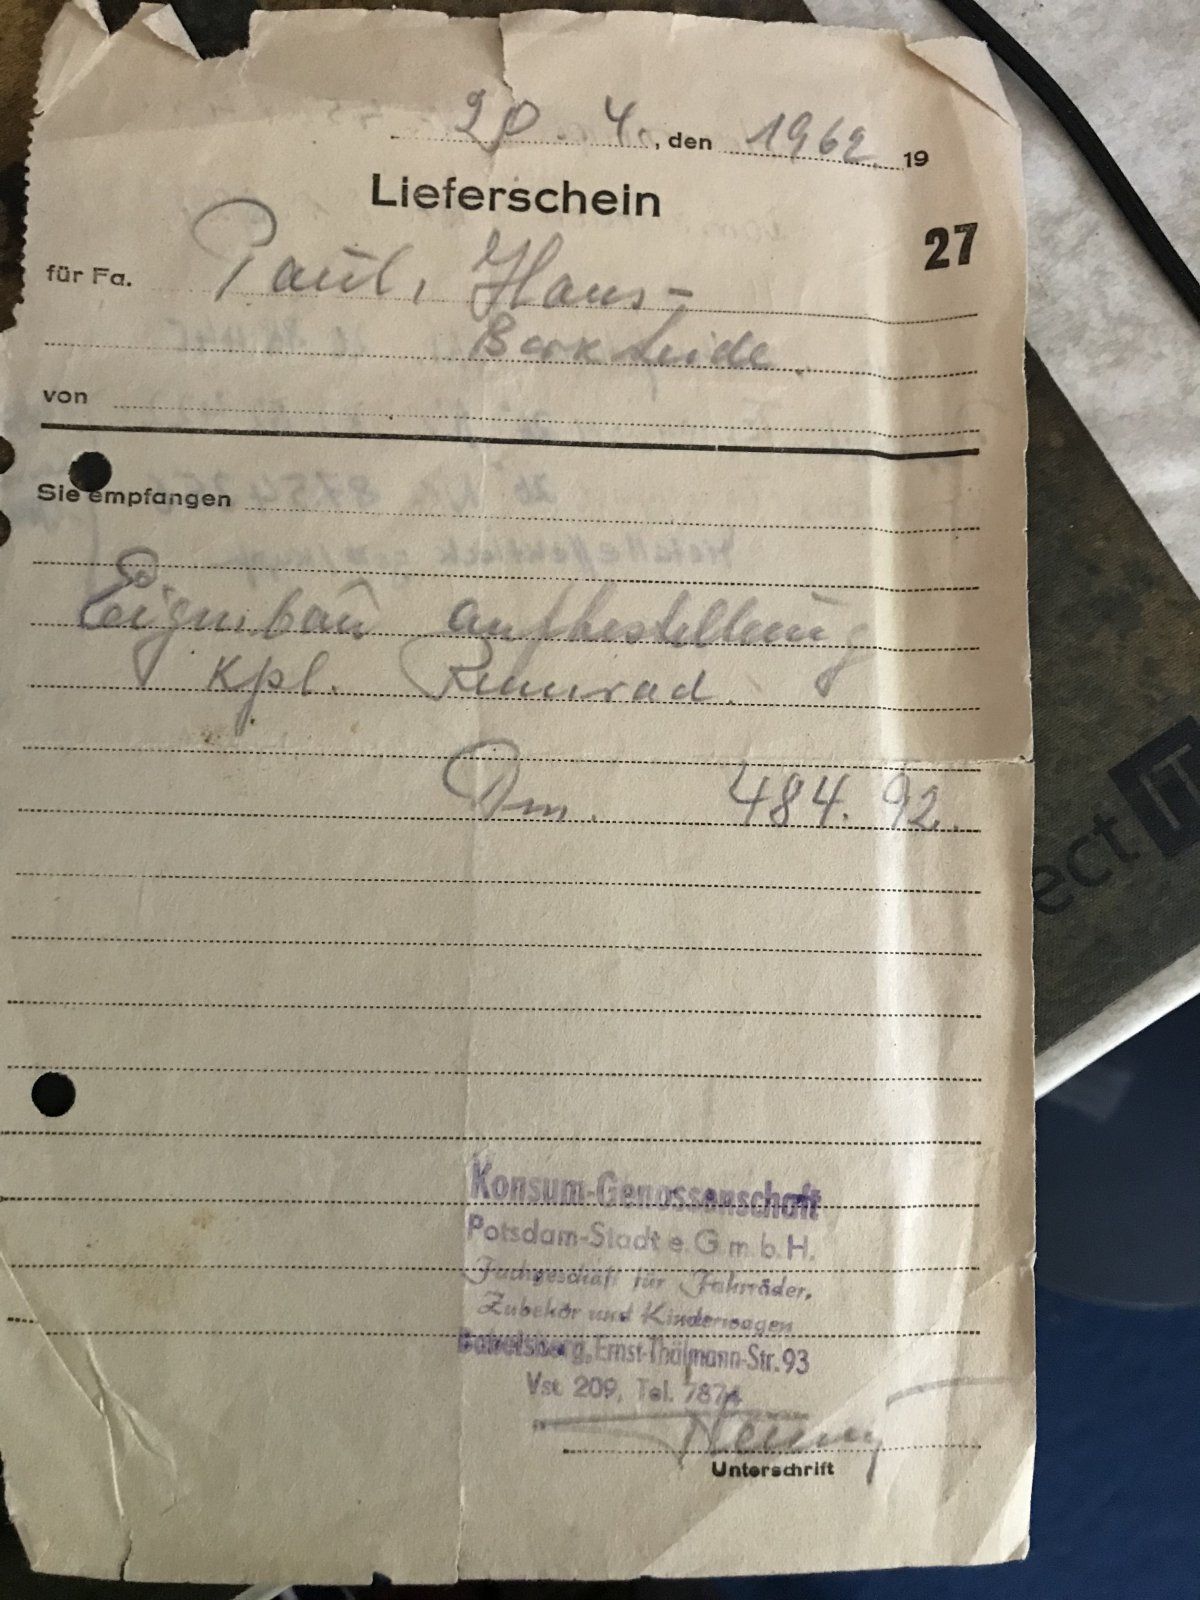 20 4. , den 1962 19
Lieferschein
27
für Fa. Paul, Hans-
Bork Heide.
von
Sie empfangen
Eigenbau aufbestellung
kpl. Rennrad.
Dm. 484.92.
Konsum-Genossenschaft
Potsdam-Stadt e.G.m.b.H.
Fachgeschäft für Fahrräder,
Zubehör und Kinderwagen
Babelsberg, Ernst-Thälmann-Str. 93
Vst. 209, Tel. 7874
Unterschrift
ect IT